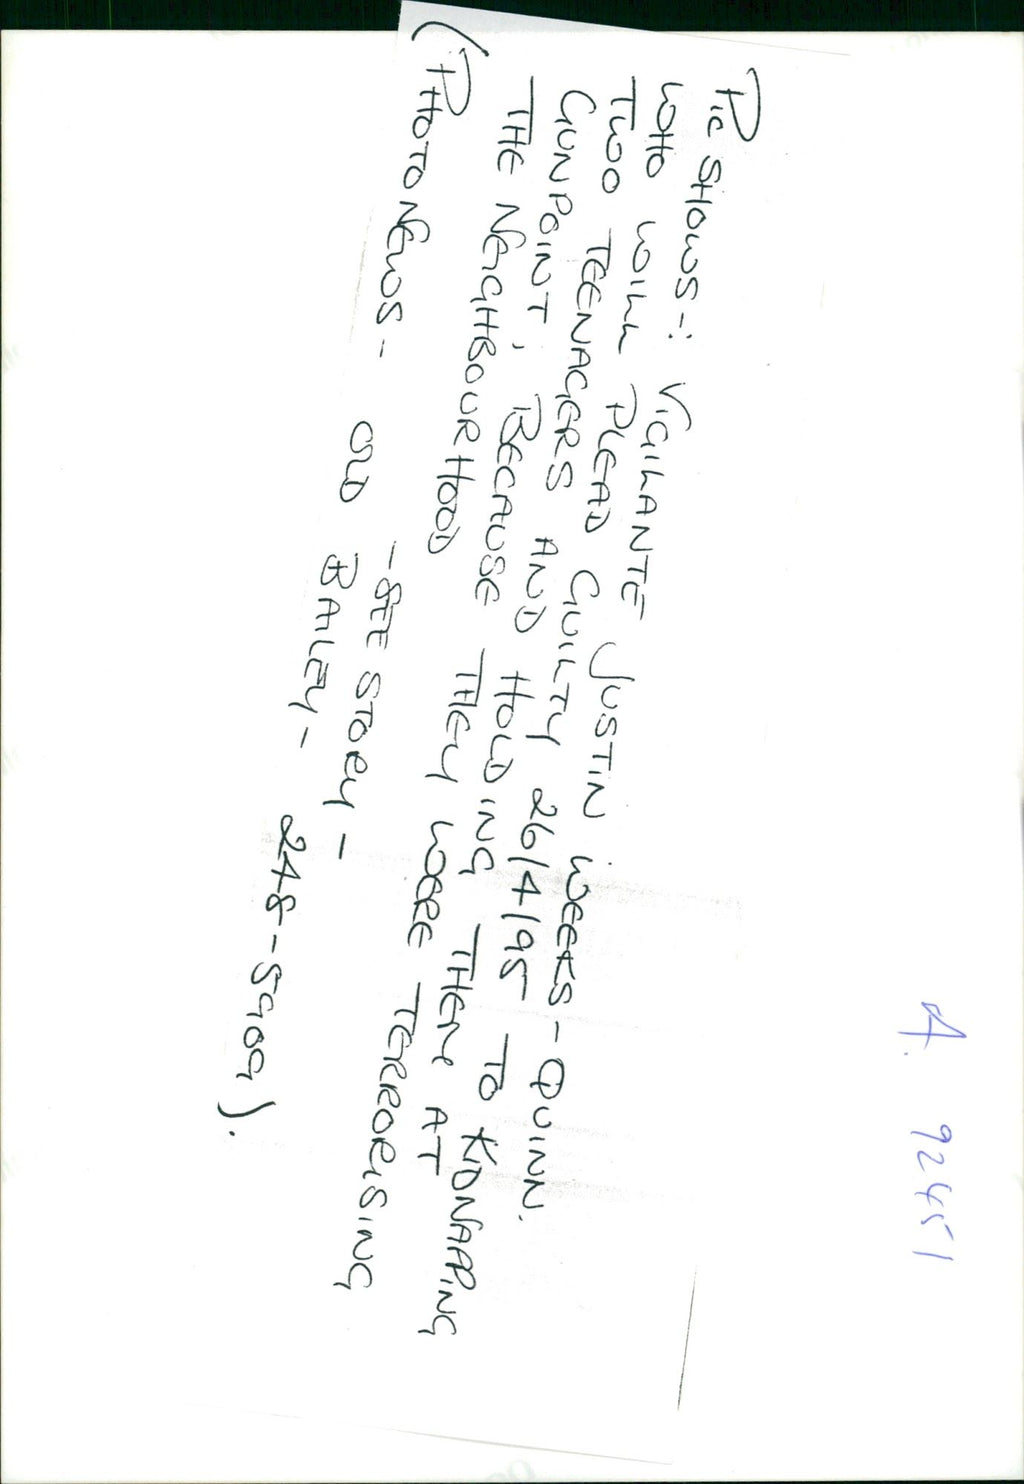 A. 92451
PIC SHOWS-: VIGILANTE JUSTIN WEEKS-QUINN.
WHO WILL PLEAD GUILTY 26/4/95 TO KIDNAPPING
TWO TEENAGERS AND HOLDING THEM AT
GUNPOINT, BECAUSE THEY WERE TERRORISING
THE NEIGHBOURHOOD
-SEE STORY-
(PHOTONEWS- OLD BAILEY- 248-5909).